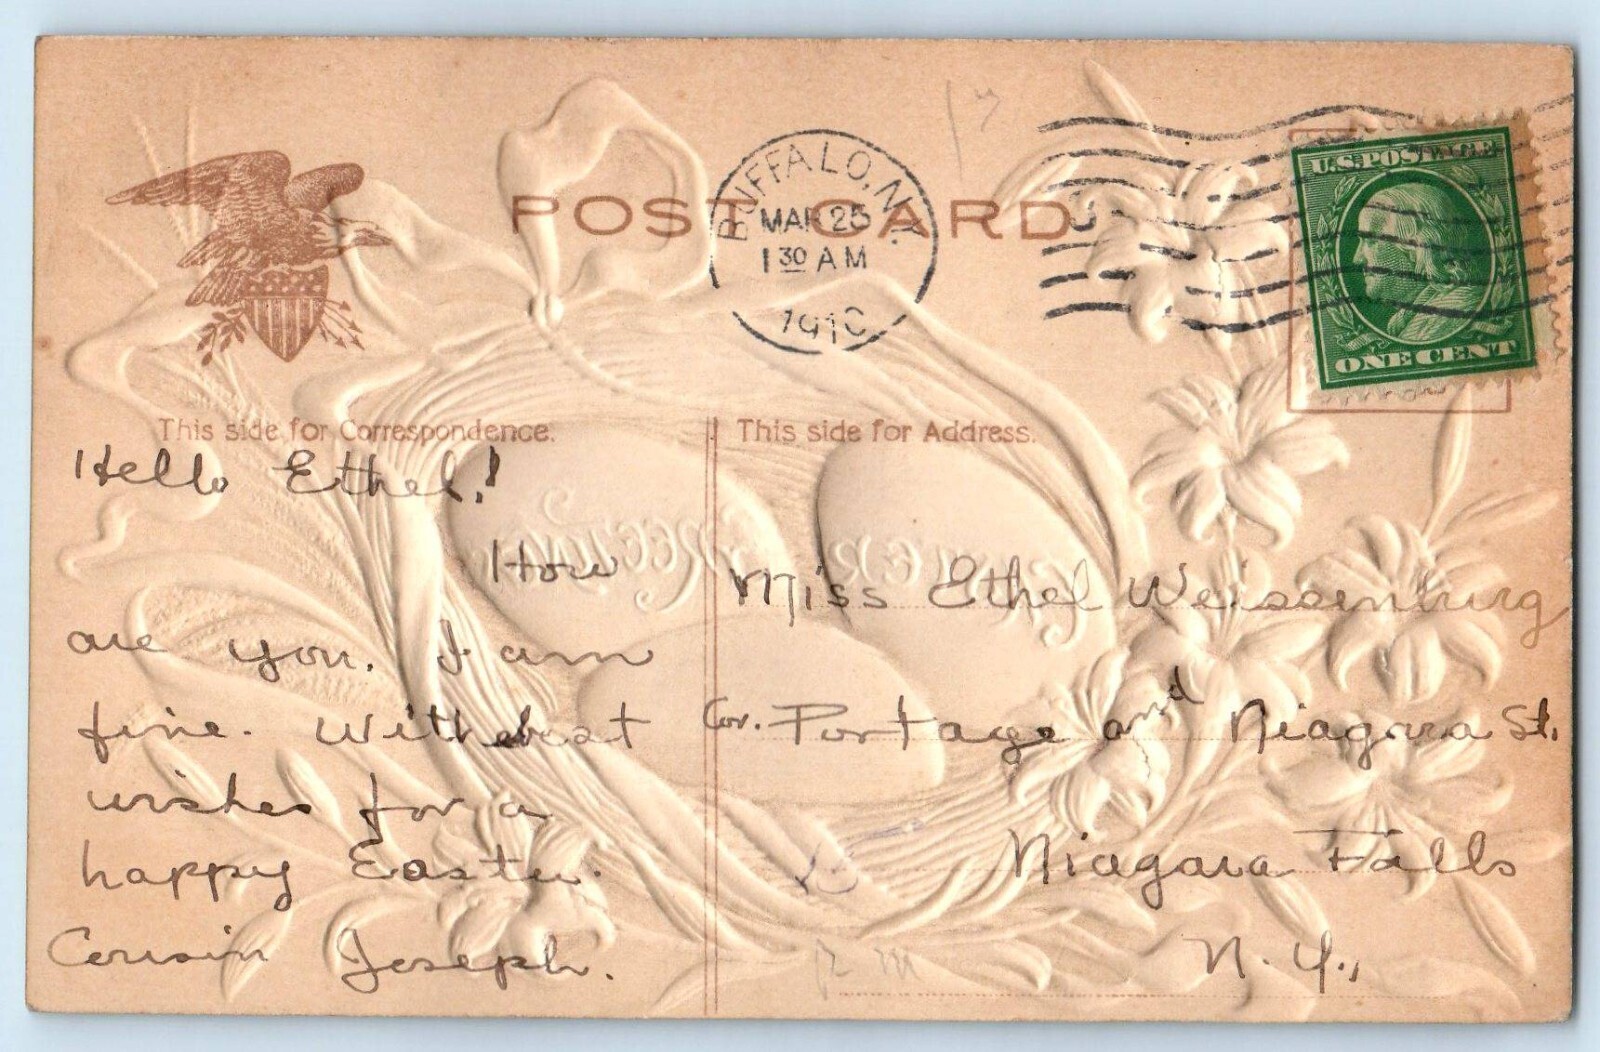 POST CARD
BUFFALO, N.Y.
MAR 25
1 30 AM
1910
U.S. POSTAGE
ONE CENT
This side for Correspondence.
This side for Address.
Hello Ethel!
How
are you. I am
fine. With best
wishes for a
happy Easter.
Cousin Joseph.
EASTER
GREETING
Miss Ethel Weissenburg
Cor. Portage and Niagara St.
Niagara Falls
N. Y.,